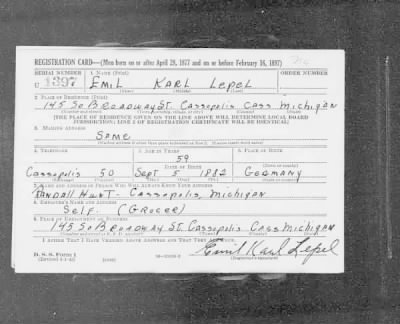 REGISTRATION CARD—(Men born on or after April 28, 1877 and on or before February 16, 1897)
SERIAL NUMBER 1. NAME (Print) ORDER NUMBER
U 1397 EMIL KARL LEPEL
2. PLACE OF RESIDENCE (Print)
145 SO BROADWAY ST. CASSOPOLIS CASS MICHIGAN
[THE PLACE OF RESIDENCE GIVEN ON THE LINE ABOVE WILL DETERMINE LOCAL BOARD
JURISDICTION; LINE 2 OF REGISTRATION CERTIFICATE WILL BE IDENTICAL]
3. MAILING ADDRESS
SAME
4. TELEPHONE 5. AGE IN YEARS 6. PLACE OF BIRTH
59
DATE OF BIRTH
CASSOPOLIS 50 SEPT 5 1882 GERMANY
7. NAME AND ADDRESS OF PERSON WHO WILL ALWAYS KNOW YOUR ADDRESS
RANDALL HUNT - CASSOPOLIS, MICHIGAN
8. EMPLOYER'S NAME AND ADDRESS
SELF (GROCER)
9. PLACE OF EMPLOYMENT OR BUSINESS
145 SO BROADWAY ST. CASSOPOLIS CASS MICHIGAN
I AFFIRM THAT I HAVE VERIFIED ABOVE ANSWERS AND THAT THEY ARE TRUE.
D. S. S. Form 1 Emil Karl Lepel
(Revised 4-1-42)